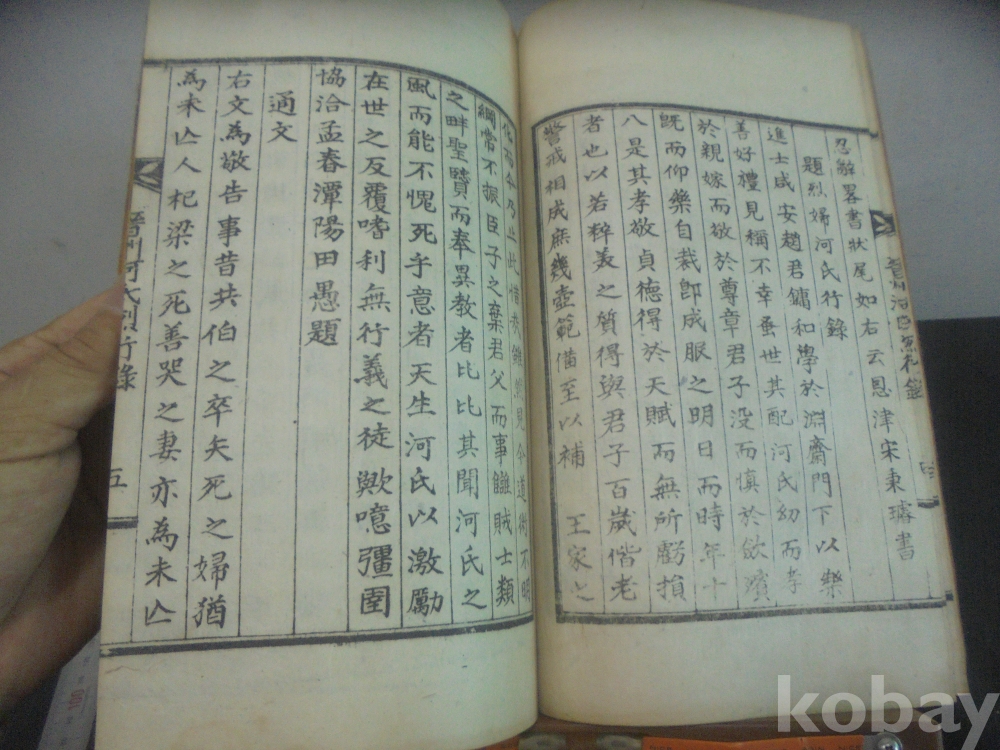 忍辭畧書狀尾如右云恩津宋秉璿書
題烈婦河氏行錄
進士咸安趙君鏞和學於淵齋門下以樂
善好禮見稱不幸蚤世其配河氏幼而孝
於親嫁而敬於尊章君子没而慎於飲殯
既而仰藥自裁卽成服之明日而時年十
八是其孝敬貞德得於天賦而無所虧損
者也以若粹美之質得與君子百歲偕老
警戒相成庶幾壺範備至以補 王家之
化而今乃止此惜哉雖然見今道術不明
綱常不振臣子之棄君父而事讎賊士類
之畔聖贒而奉異教者比比其聞河氏之
風而能不愧死乎意者天生河氏以激勵
在世之反覆嗜利無行義之徒歟噫彊圉
協洽孟春潭陽田愚題
通文
右文為敬告事昔共伯之卒矢死之婦猶
為未亾人杞梁之死善哭之妻亦為未亾
晉州河氏烈行錄
五
kobay